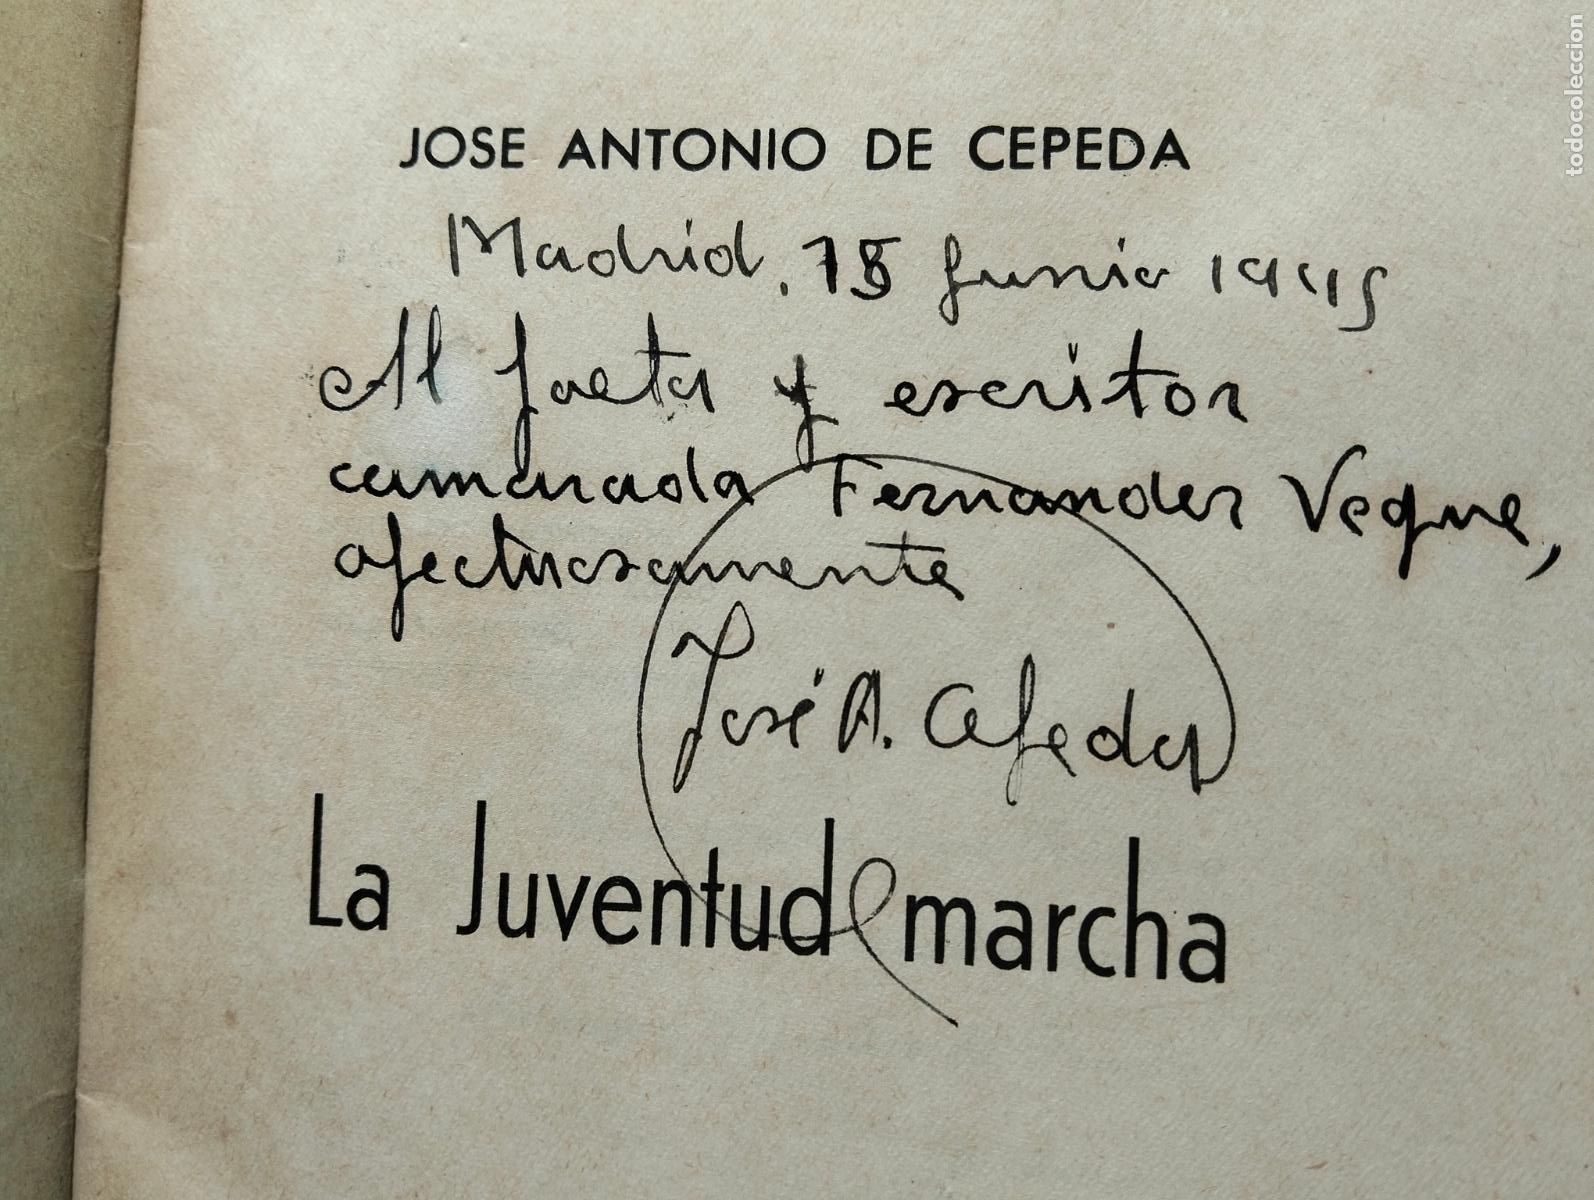 JOSE ANTONIO DE CEPEDA
Madrid, 15 Junio 1945
Al poeta y escritor
camarada Fernandez Veque,
afectuosamente
José A. Cepeda
La Juventud marcha
todocoleccion